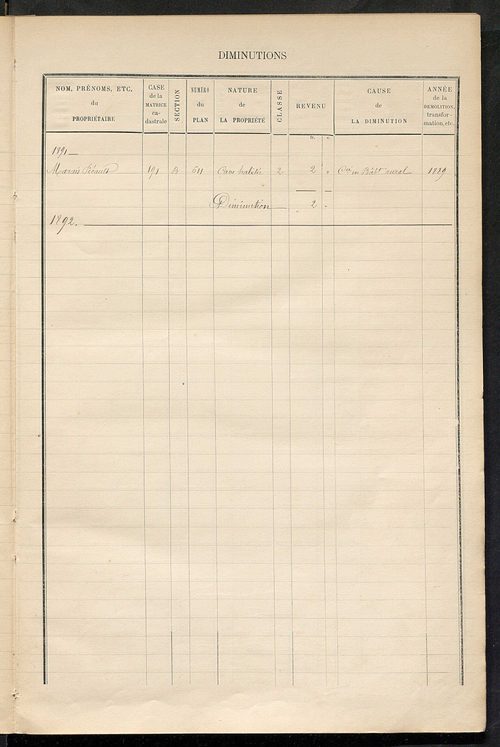 DIMINUTIONS
NOM, PRÉNOMS, ETC.
du
PROPRIÉTAIRE
CASE
de la
MATRICE
ca-
dastrale
SECTION
NUMÉRO
du
PLAN
NATURE
de
LA PROPRIÉTÉ
CLASSE
REVENU
CAUSE
de
LA DIMINUTION
ANNÉE
de la
DÉMOLITION,
transfor-
mation, etc.
fr. c.
1891
191 B 611 2 2 " rural 1889
Diminution 2 "
1892.